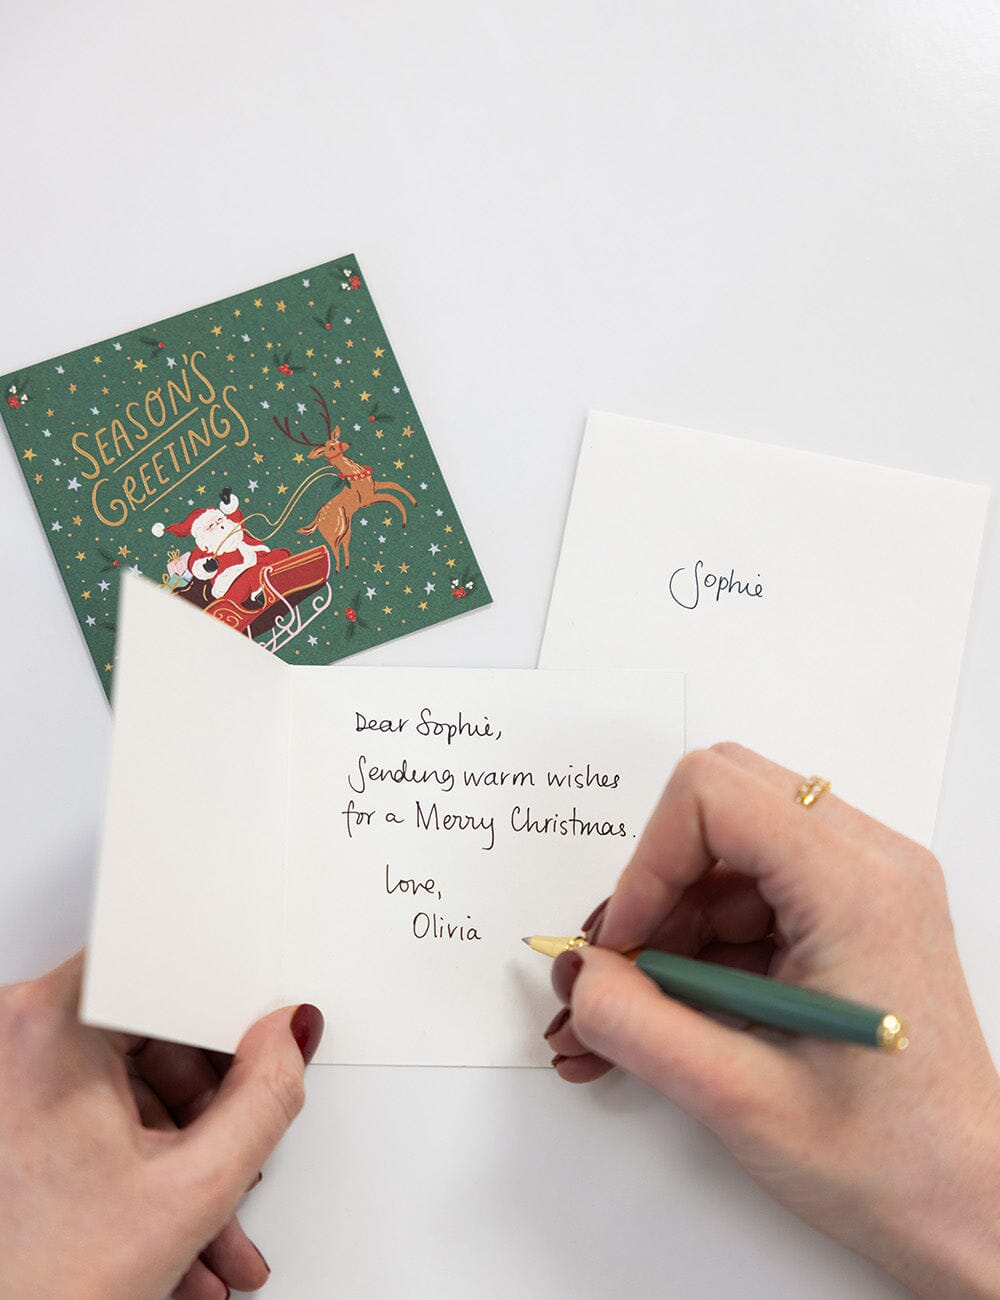 SEASON'S
GREETINGS
Sophie
Dear Sophie,
Sending warm wishes
for a Merry Christmas.
Love,
Olivia